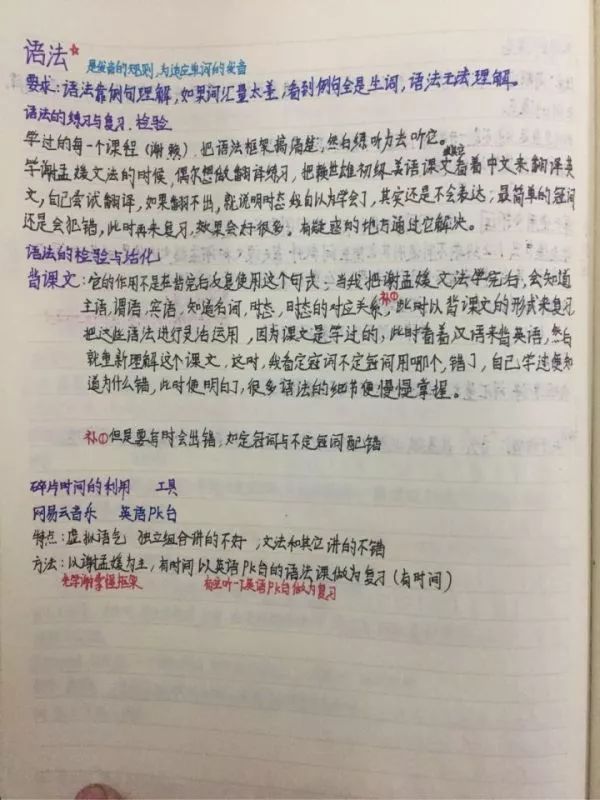 语法☆
是发音的规则,为适应单词的发音
要求:语法靠例句理解,如果词汇量太差,看到例句全是生词,语法无法理解。
语法的练习与复习.检验
学过的每一个课程(谢 赖).把语法框架搞清楚,然后练听力去听它。
学谢孟媛文法的时候,偶尔想做翻译练习,把赖世雄初级美语课文看着中文来翻译英
文,自己尝试翻译,如果翻不出,就说明时态经自以为学会了,其实还是不会表达;最简单的冠词
还是会犯错,此时再来复习,效果会好很多。有疑惑的地方通过它解决。
语法的检验与活化
背课文:它的作用不是在背完后反复使用这个句式;当我把谢孟媛文法学完后,会知道
主语,谓语,宾语,知道名词,时态,时态的对应关系,补①此时以背课文的形式来复习
把这些语法进行灵活运用,因为课文是学过的,此时看着汉语来背英语,然后
就重新理解这个课文,这时,我看定冠词不定冠词用哪个,错了,自己学过便知
道为什么错,此时便明白了,很多语法的细节便慢慢掌握。
补①但是要有时会出错,如定冠词与不定冠词配错
碎片时间的利用 工具
网易云音乐 英语Pk台
特点:虚拟语气 独立组合讲的不好,文法和其它讲的不错
方法:以谢孟媛为主,有时间以英语PK台的语法课做为复习(有时间)
先学谢掌握框架 有空听一下英语PK台做为复习